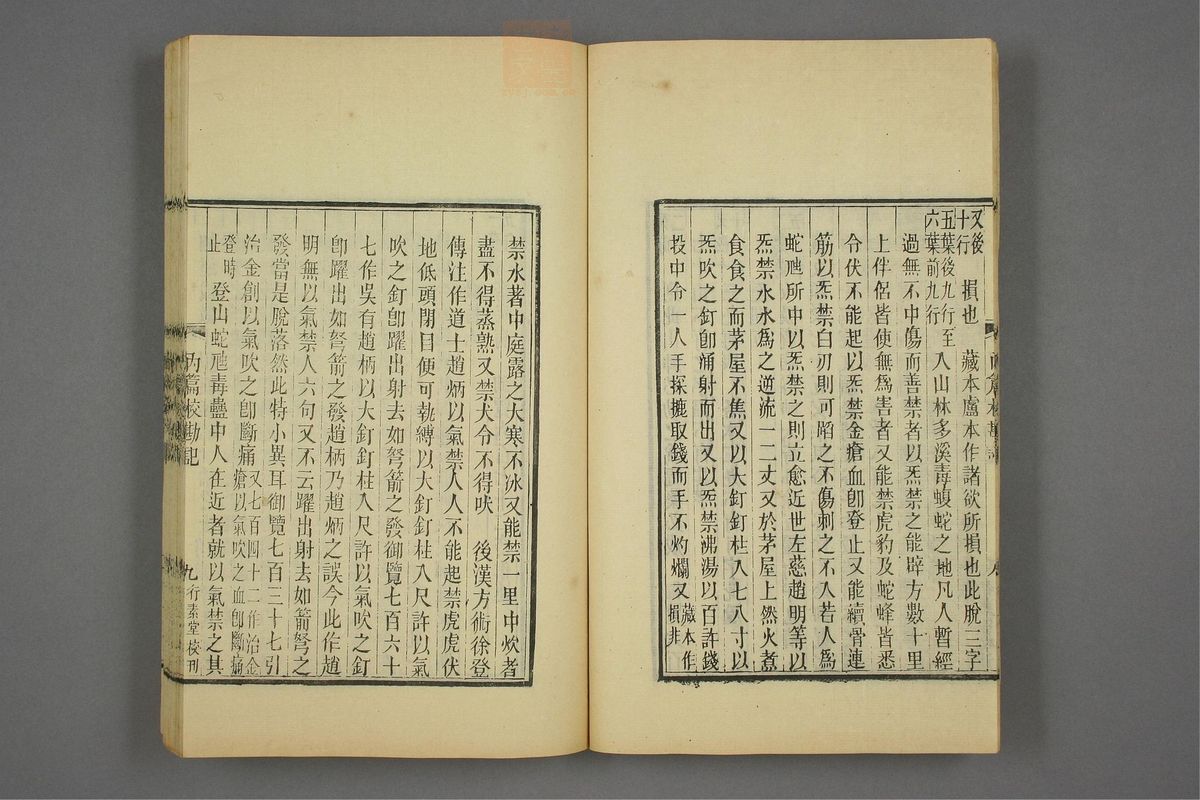 又後十行　損也　藏本盧本作諸欲所損也此脫三字
五葉後九行至六葉前九行　入山林多溪毒蝮蛇之地凡人暫經
過無不中傷而善禁者以炁禁之能辟方數十里
上伴侶皆使無爲害者又能禁虎豹及蛇蜂皆悉
令伏不能起以炁禁金瘡血卽登止又能續骨連
筋以炁禁白刃則可蹈之不傷刺之不入若人爲
蛇虺所中以炁禁之則立愈近世左慈趙明等以
炁禁水水爲之逆流一二丈又於茅屋上然火煮
食食之而茅屋不焦又以大釘釘柱入七八寸以
炁吹之釘卽涌射而出又以炁禁沸湯以百許錢
投中令一人手探摝取錢而手不灼爛又藏本作損非
禁水著中庭露之大寒不冰又能禁一里中炊者
盡不得蒸熟又禁犬令不得吠　後漢方術徐登
傳注作道士趙炳以氣禁人人不能起禁虎虎伏
地低頭閉目便可執縛以大釘釘柱入尺許以氣
吹之釘卽躍出射去如弩箭之發御覽七百六十
七作吳有趙柄以大釘釘柱入尺許以氣吹之釘
卽躍出如弩箭之發趙柄乃趙炳之誤今此作趙
明無以氣禁人六句又不云躍出射去如箭弩之
發當是脫落然此特小異耳御覽七百三十七引
治金創以氣吹之卽斷痛又七百四十二作治金瘡以氣吹之血卽斷痛
登時止　登山蛇虺毒蠱中人在近者就以氣禁之其
內篇校勘記
九　行素堂校刊